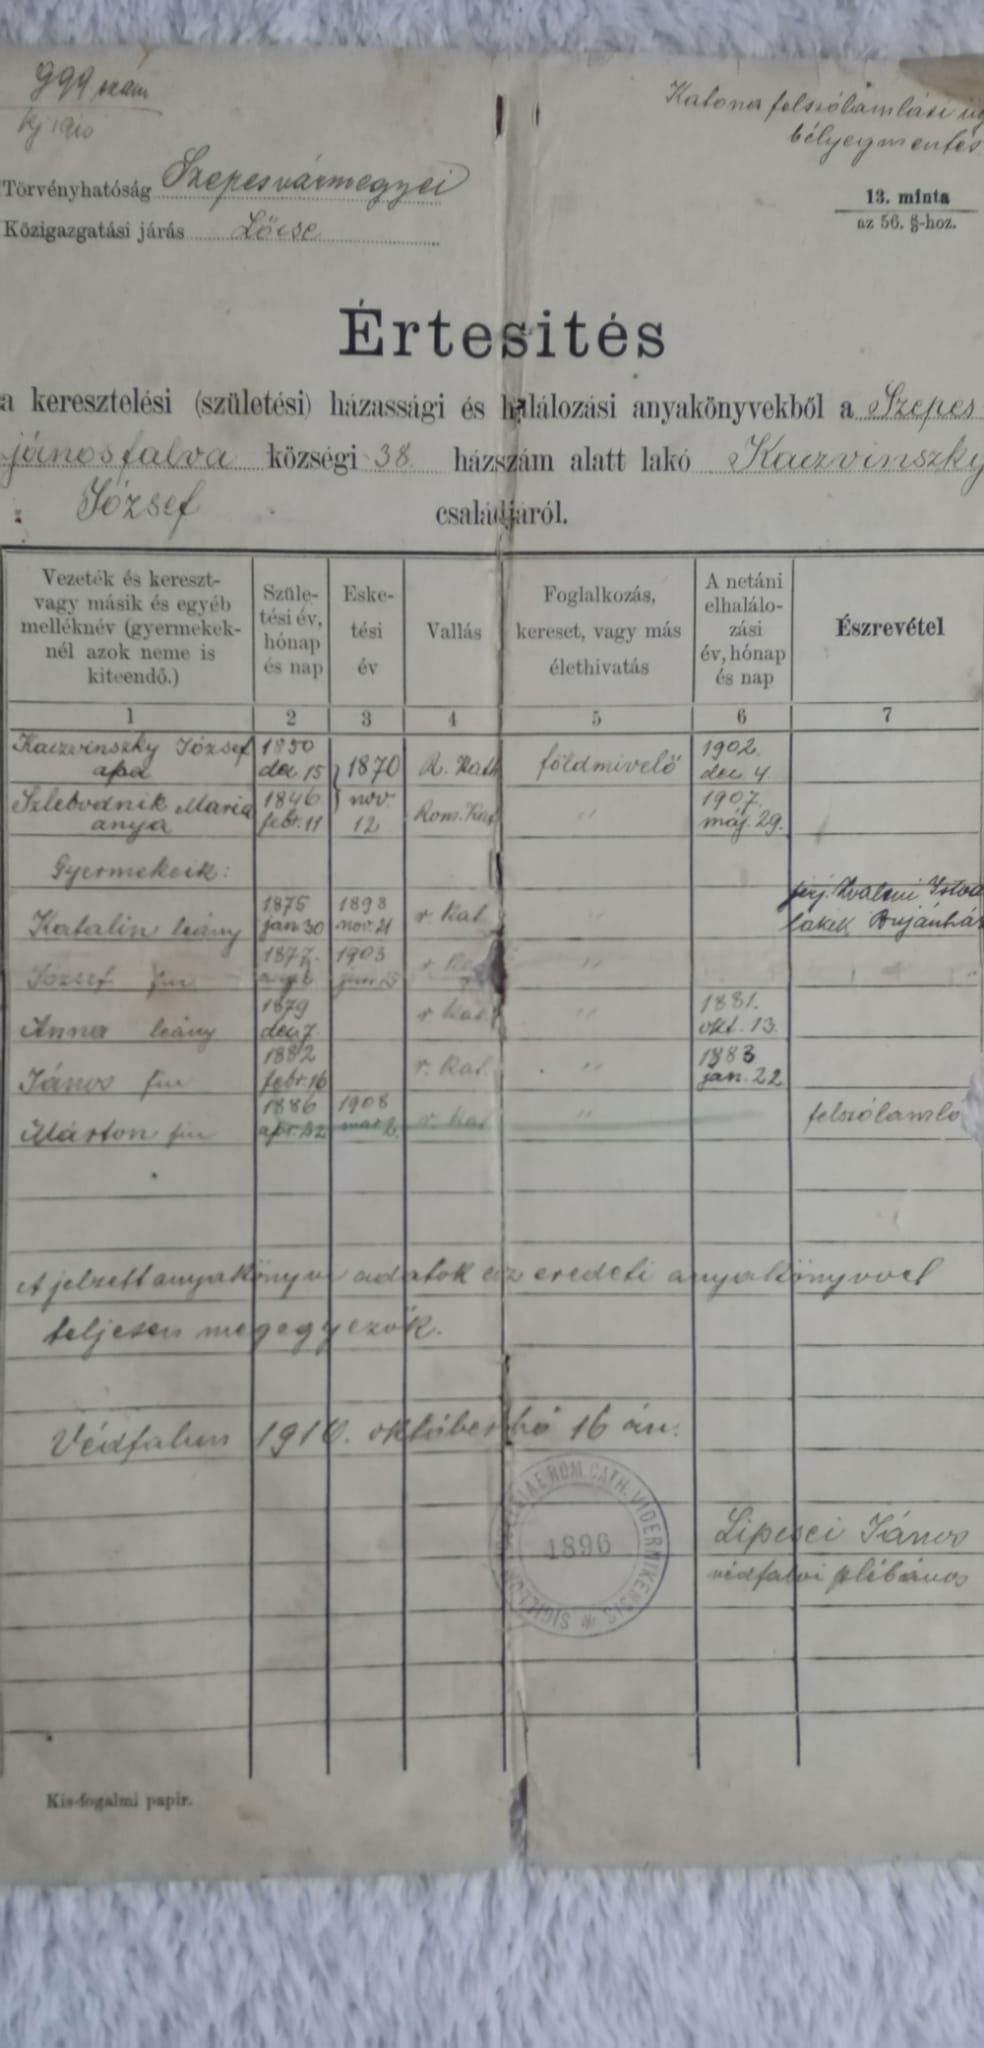 999 szám
kj 1910
Katona felszólamlási üg
bélyegmentes
Törvényhatóság Szepesvármegyei
Közigazgatási járás Lőcse
13. minta
az 56. §-hoz.
Értesités
a keresztelési (születési) házassági és halálozási anyakönyvekből a Szepes
jánosfalva községi 38 házszám alatt lakó Kaczvinszky
József családjáról.
Vezeték és kereszt-
vagy másik és egyéb
melléknév (gyermekek-
nél azok neme is
kiteendő.)
Szüle-
tési év,
hónap
és nap
Eske-
tési
év
Vallás
Foglalkozás,
kereset, vagy más
élethivatás
A netáni
elhaláló-
zási
év, hónap
és nap
Észrevétel
1 2 3 4 5 6 7
Kaczvinszky József 1850 1902.
apa dec 15 1870 R. Kath földmivelő dec. 4
Szlebodnik Maria 1846 nov. 1907.
anya febr. 11 12 Rom. Kat " máj. 29.
Gyermekeik:
férj. István
1875 1898 lakik
Katalin leány jan 30 nov. 21 r. Kat. "
1877. 1903
József fiu jun 15 r. "
1879 1881.
Anna leány dec 7. r. Kat. " okt. 13.
1882 1883
János fiu febr. 16 r. Kat. " jan. 22
1886 1908
Márton fiu apr. r. Kat " felszólamló
A jelzett anyakönyvi adatok az eredeti anyakönyvvel
teljesen megegyezők.
Védfalun 1910. október hó 16 án.
SIGILLUM ROM. CATH. VIDERNIKENSIS
1896
Lipcsei János
védfalvi plébános
Kis-fogalmi papir.